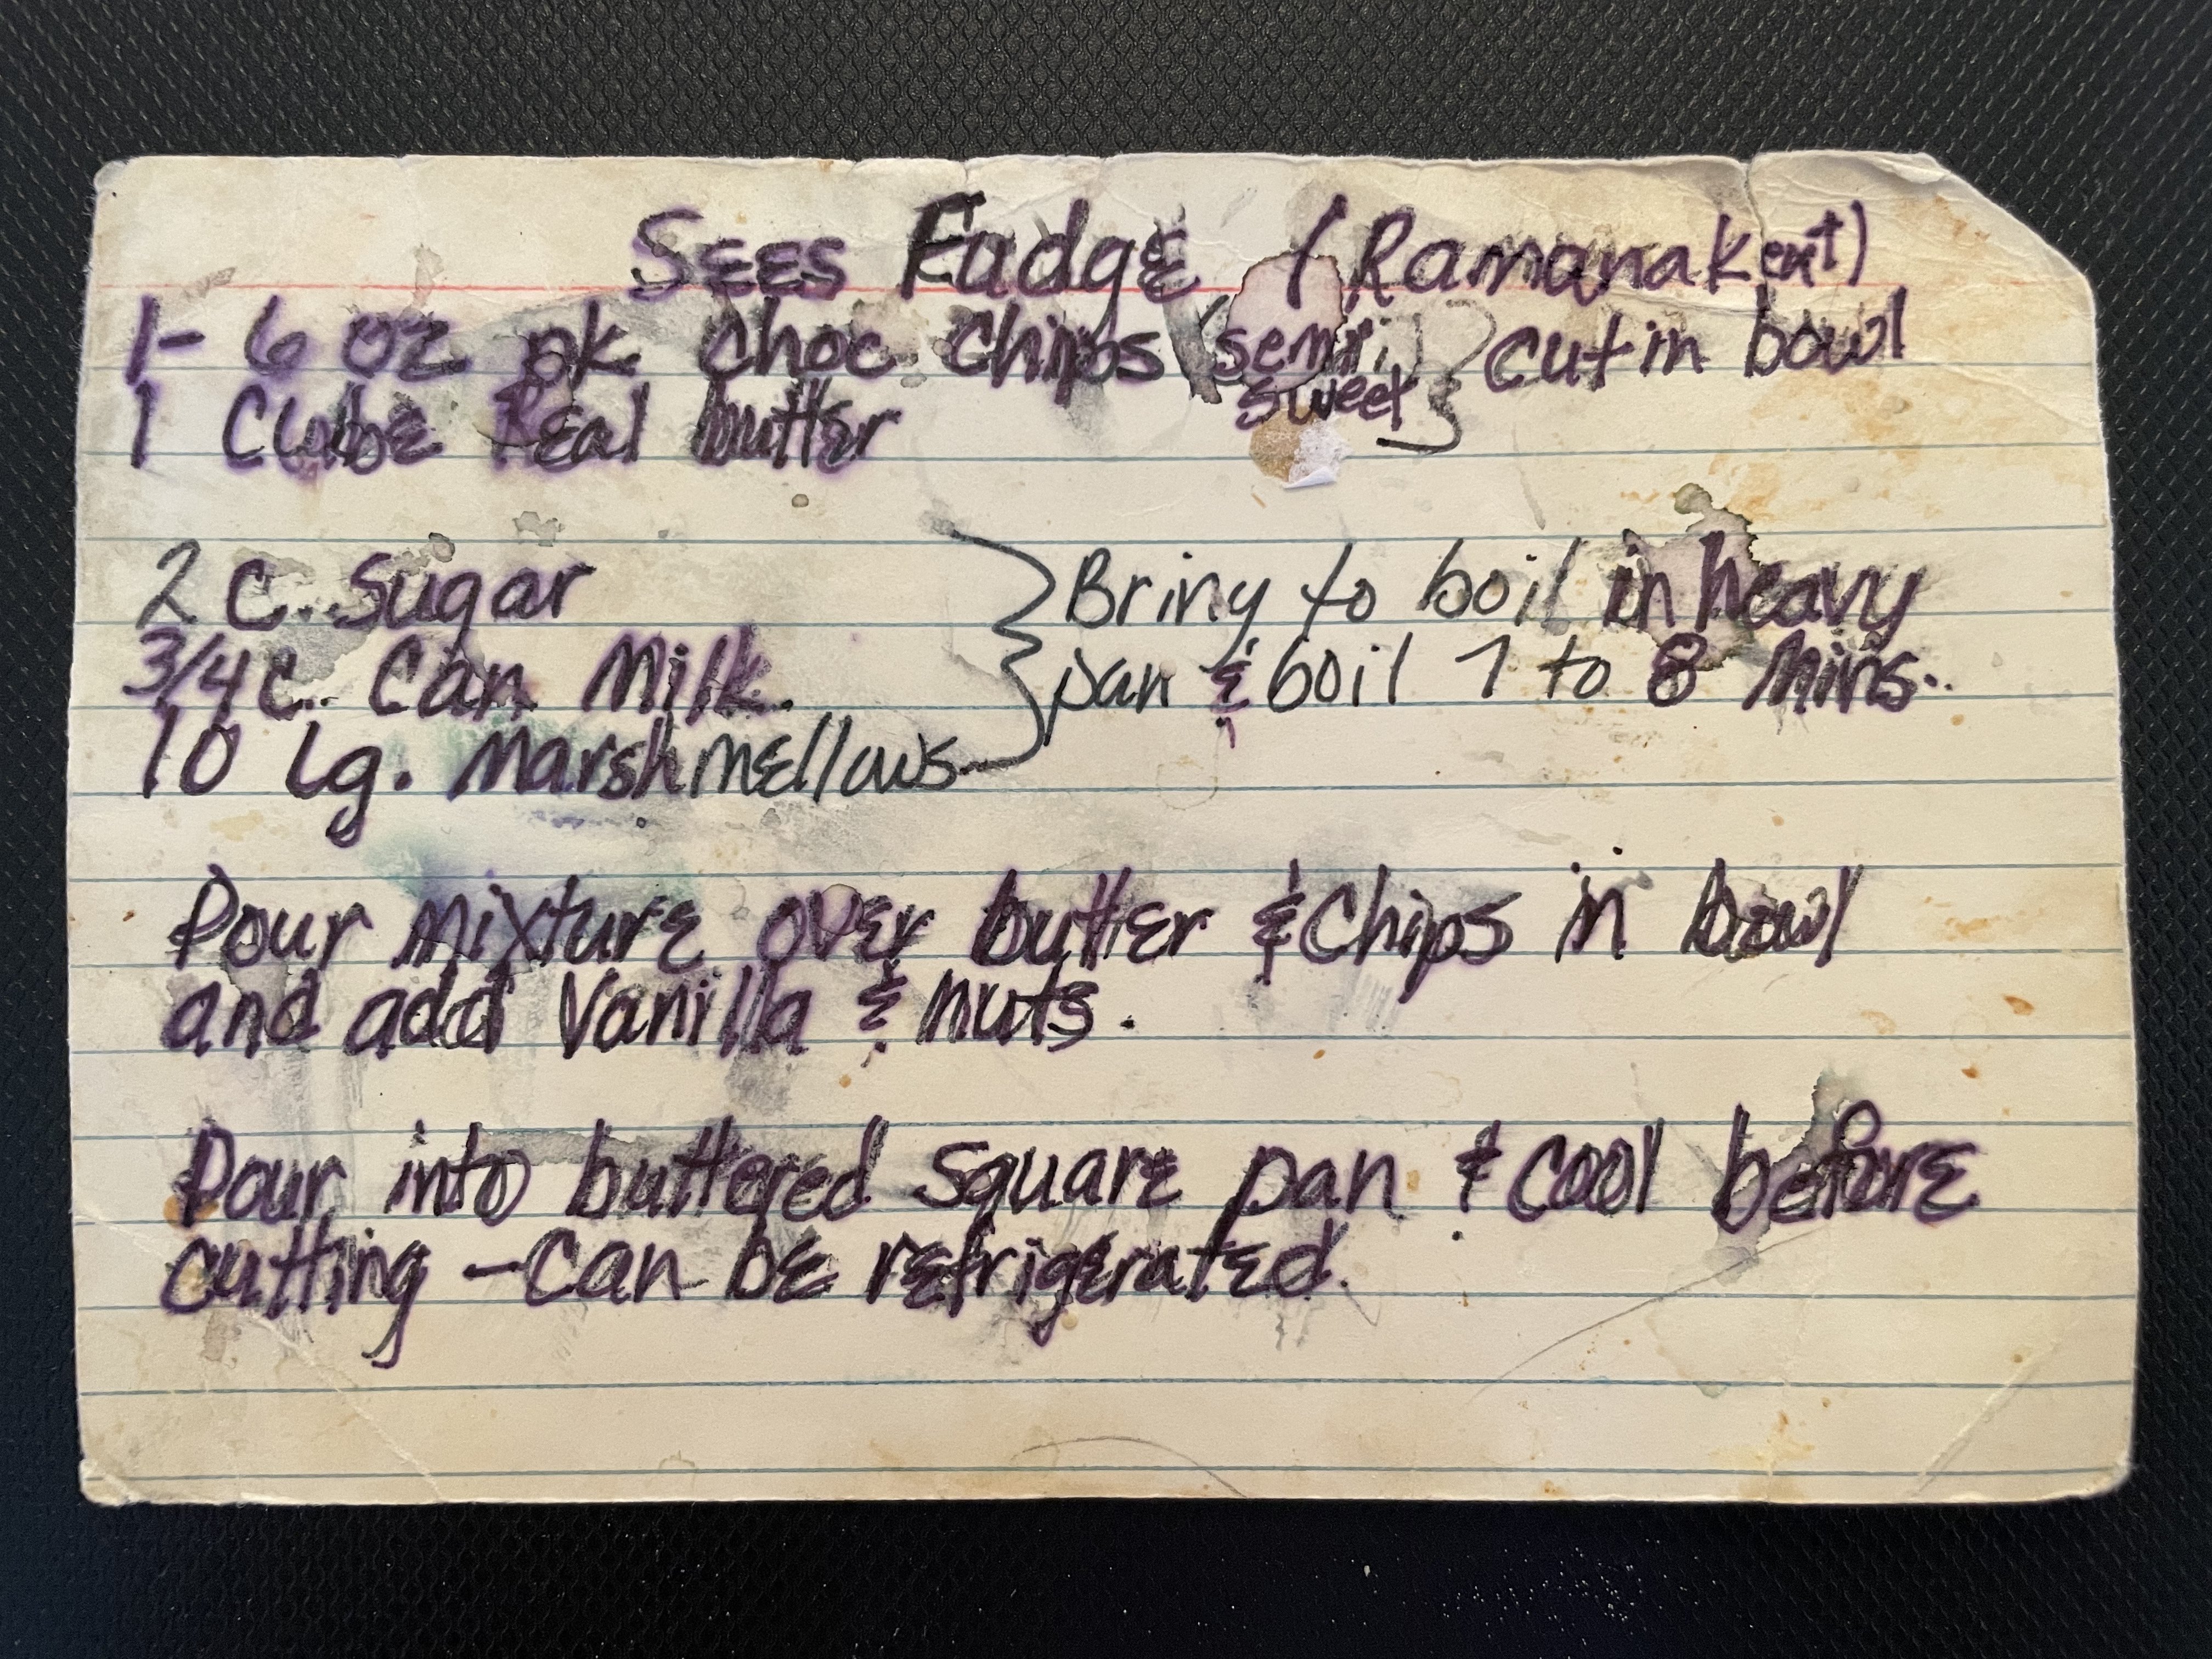 Sees Fudge (Ramanakent)
1- 6 oz pk. choc chips (semi sweet) cut in bowl
1 Cube Real butter
2 c. Sugar
3/4 c. Can Milk.
10 lg. Marshmellows
Bring to boil in heavy
pan & boil 7 to 8 Mins..
Pour mixture over butter & Chips in bowl
and add Vanilla & nuts.
Pour into buttered square pan & cool before
cutting - Can be refrigerated.